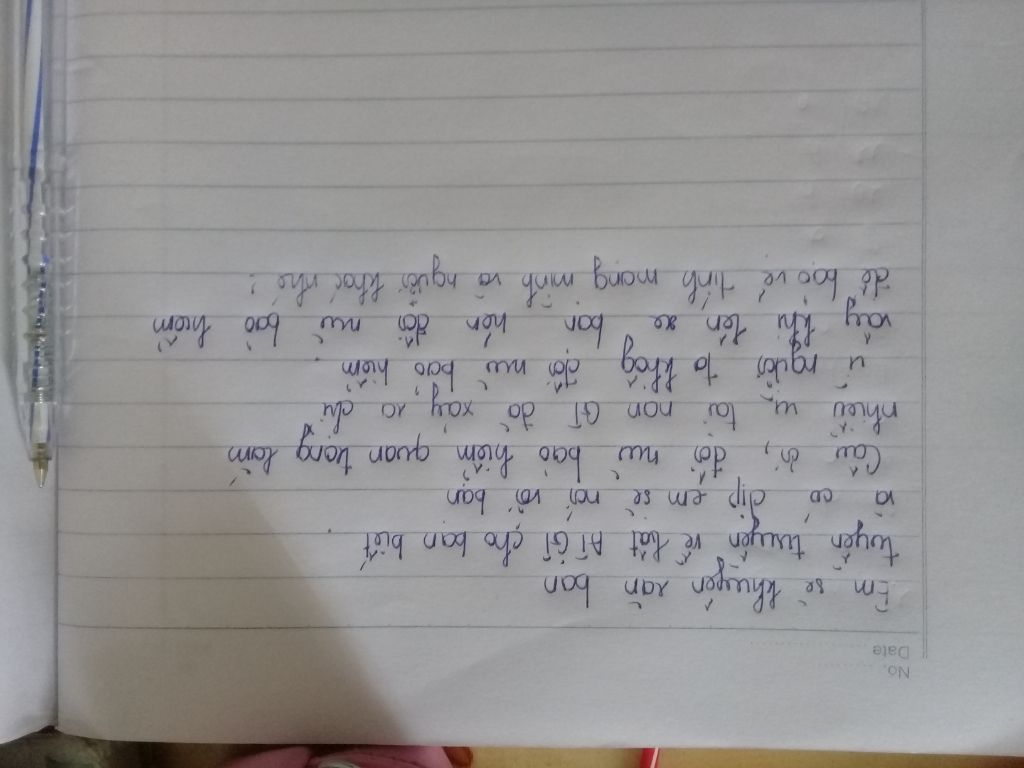 No.
Date
Em sẽ khuyên răn bạn
tuyên truyền về luật ATGT cho bạn biết
và có dịp em sẽ nói với bạn
Cậu ơi, đội mũ bảo hiểm quan trọng lắm
nhiều vụ tai nạn GT đã xảy ra chỉ
vì người ta khôg đội mũ bảo hiểm
vậy khi lên xe bạn nên đội mũ bảo hiểm
để bảo vệ tính mạng mình và người khác nhé!